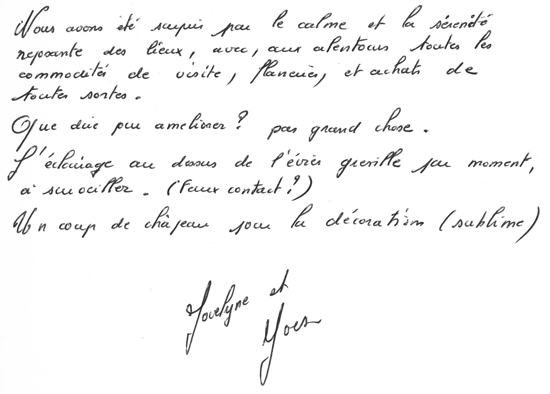 Nous avons été surpris par le calme et la sérénité
reposante des lieux, avec, aux alentours toutes les
commodités de visite, flaneries, et achats de
toutes sortes.
Que dire pour améliorer? pas grand chose.
L'éclairage au dessus de l'évier gresille par moment,
à surveiller. (Faux contact?)
Un coup de châpeau pour la décoration (sublime)
Jocelyne et
Yves